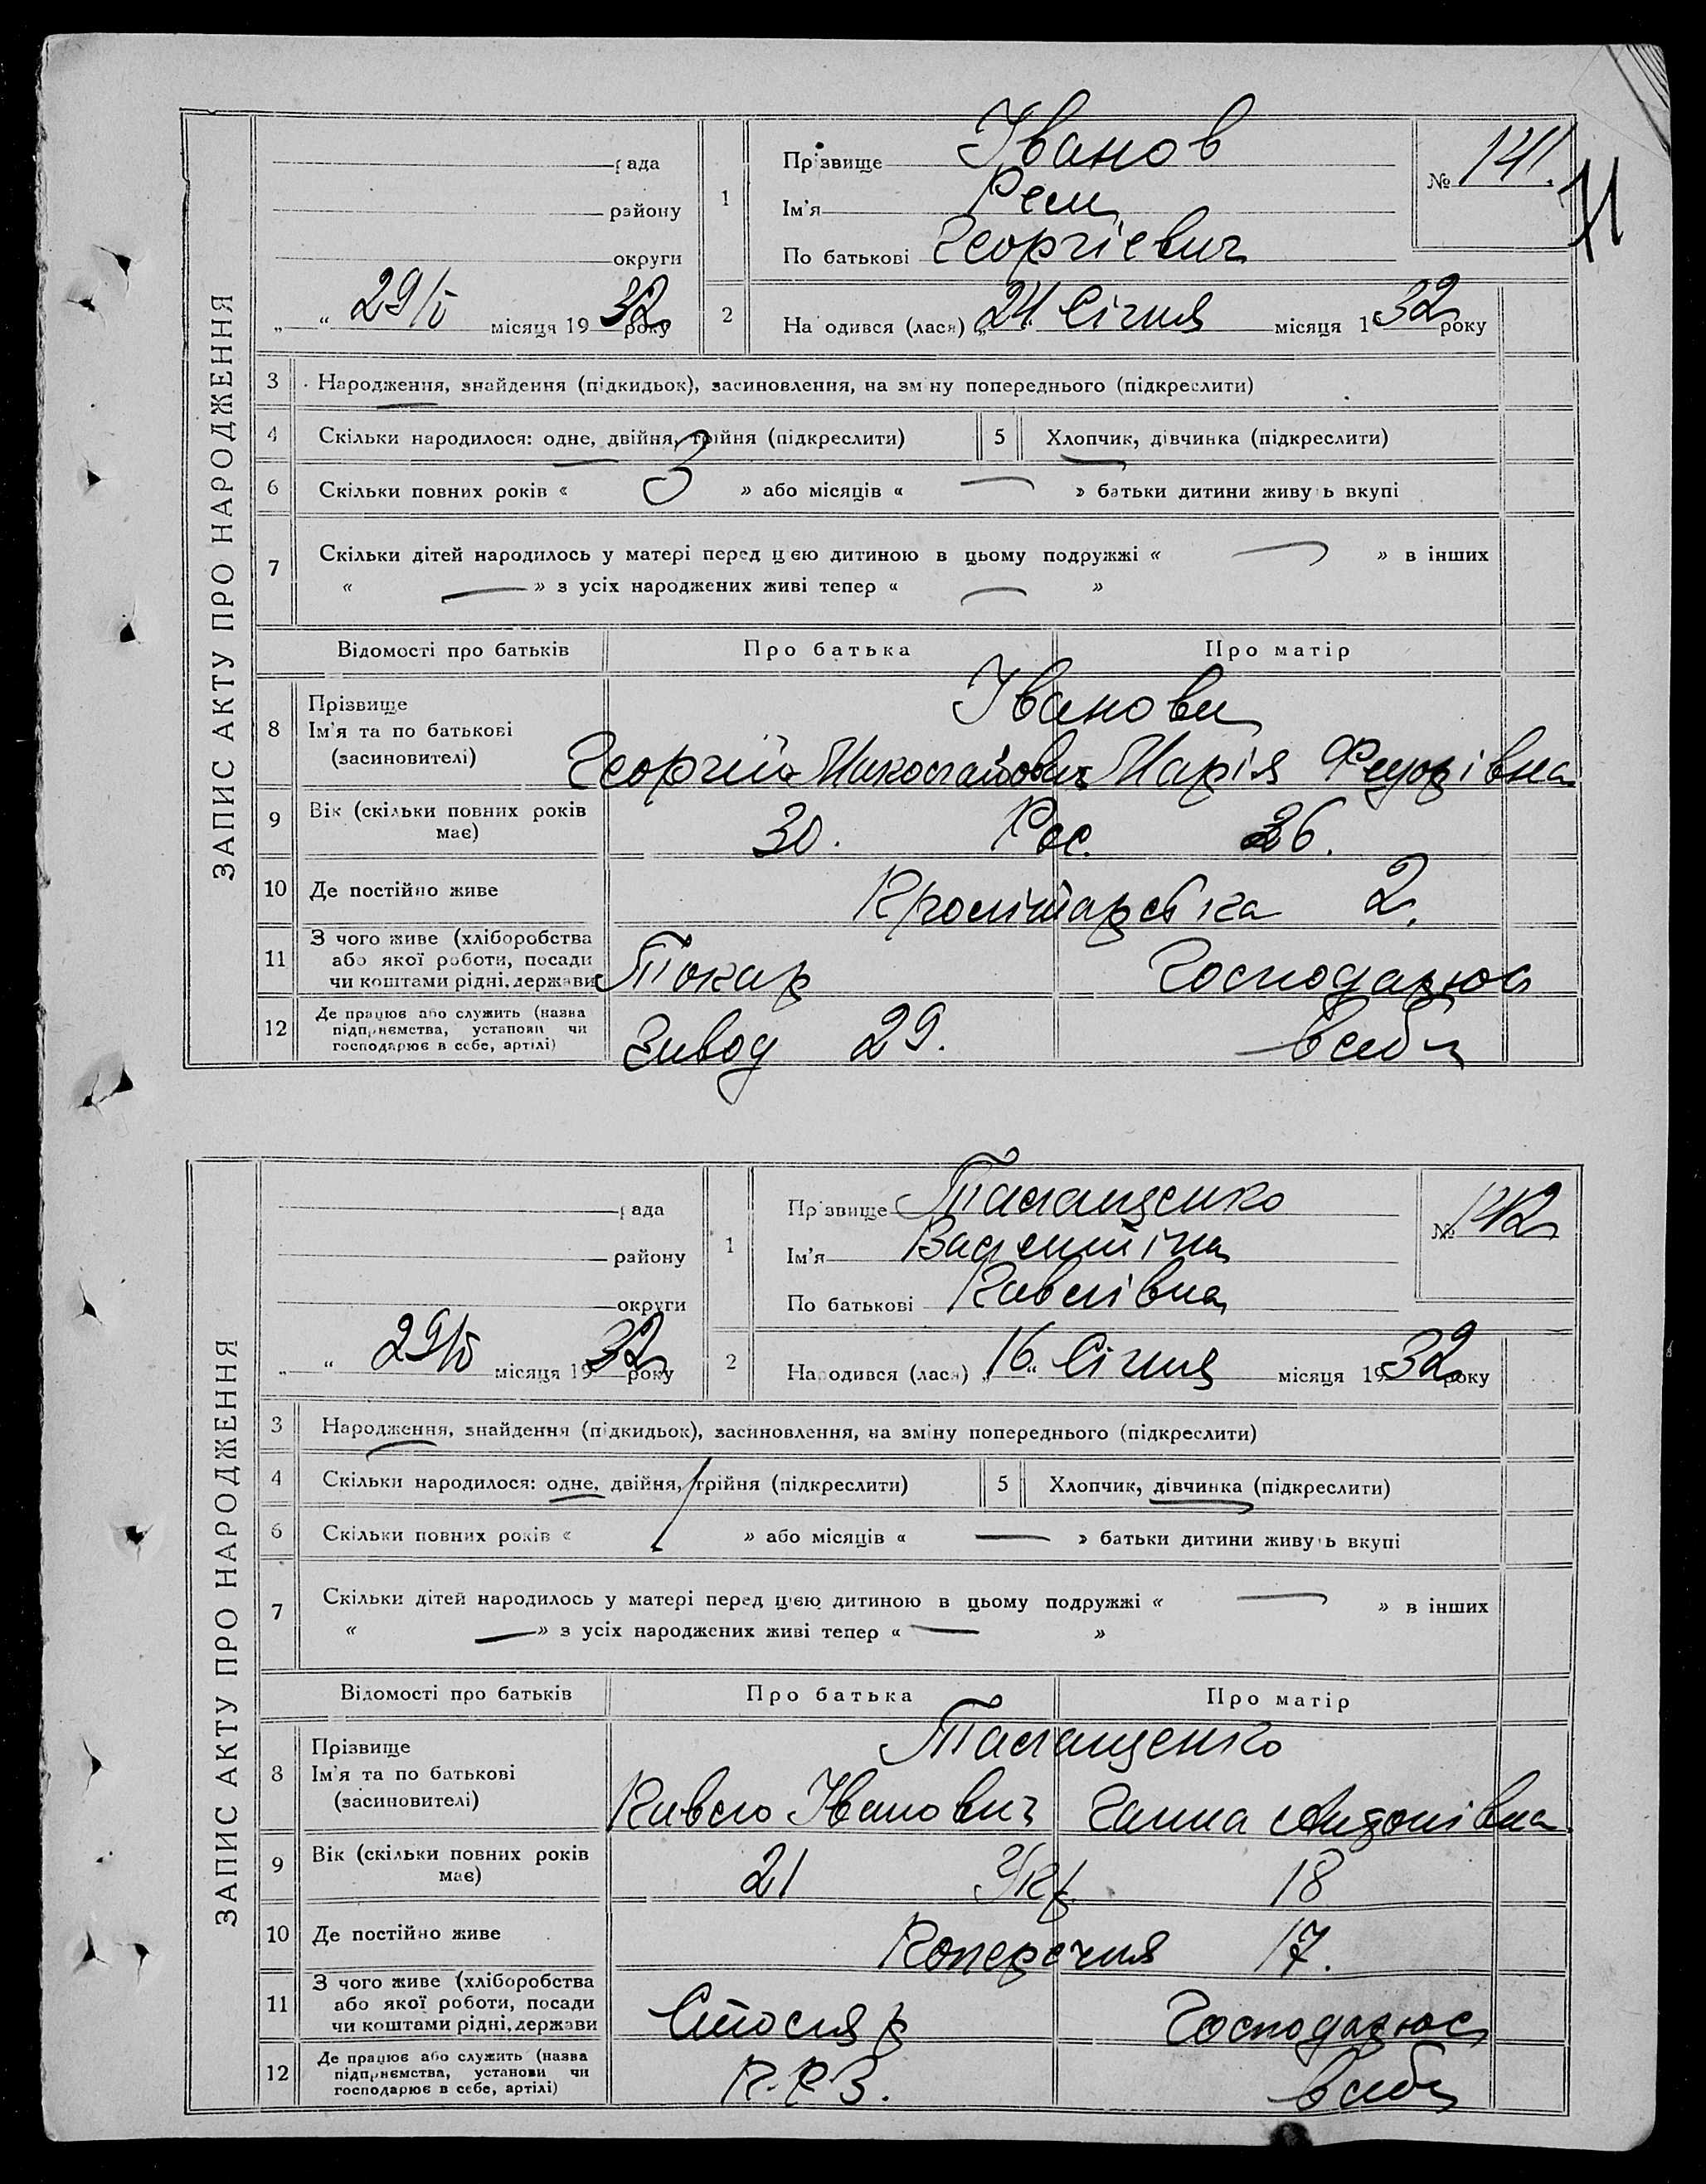 ЗАПИС АКТУ ПРО НАРОДЖЕННЯ
рада
району
округи
„ “ 29/I місяця 1932 року
1
Прізвище Іванов
Ім'я Рем
По батькові Георгієвич
№ 141.
11
2
Народився (лася) „24“ Січня місяця 1932 року
3 Народження, знайдення (підкидьок), засиновлення, на зміну попереднього (підкреслити)
4 Скільки народилося: одне, двійня, трійня (підкреслити)
5 Хлопчик, дівчинка (підкреслити)
6 Скільки повних років « 3 » або місяців « — » батьки дитини живуть вкупі
7 Скільки дітей народилось у матері перед цією дитиною в цьому подружжі « — » в інших
« — » з усіх народжених живі тепер « — »
Відомості про батьків Про батька Про матір
8 Прізвище
Ім'я та по батькові
(засиновителі)
Іванови
Георгій Миколайович Марія Федорівна
9 Вік (скільки повних років
має)
30. Рос. 26.
10 Де постійно живе
2.
11 З чого живе (хліборобства
або якої роботи, посади
чи коштами рідні, держави
Токар Господарює
12 Де працює або служить (назва
підприємства, установи чи
господарює в себе, артілі)
Завод 29. в себе
ЗАПИС АКТУ ПРО НАРОДЖЕННЯ
рада
району
округи
„ “ 29/I місяця 1932 року
1
Прізвище Талащенко
Ім'я Валентіна
По батькові Павлівна
№ 142
2
Народився (лася) „16“ Січня місяця 1932 року
3 Народження, знайдення (підкидьок), засиновлення, на зміну попереднього (підкреслити)
4 Скільки народилося: одне, двійня, трійня (підкреслити)
5 Хлопчик, дівчинка (підкреслити)
6 Скільки повних років « 1 » або місяців « — » батьки дитини живуть вкупі
7 Скільки дітей народилось у матері перед цією дитиною в цьому подружжі « — » в інших
« — » з усіх народжених живі тепер « — »
Відомості про батьків Про батька Про матір
8 Прізвище
Ім'я та по батькові
(засиновителі)
Талащенко
Павло Іванович Ганна Антонівна
9 Вік (скільки повних років
має)
21 Укр. 18
10 Де постійно живе
Поперечня 17.
11 З чого живе (хліборобства
або якої роботи, посади
чи коштами рідні, держави
Столяр Господарює
12 Де працює або служить (назва
підприємства, установи чи
господарює в себе, артілі)
в себе